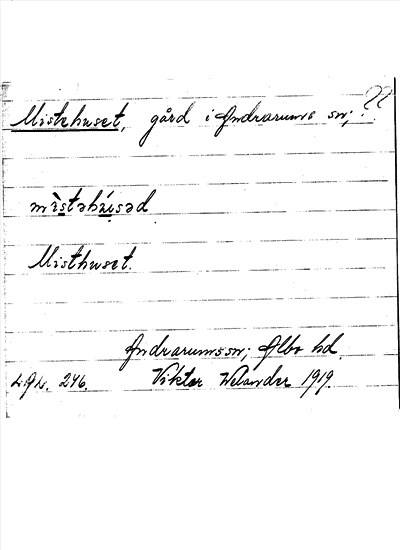 Mistehuset, gård i Andrarums sn; ??
mìstəhúsəd
Misthuset.
Andrarums sn; Albo hd.
L.G.L. 246. Viktor Welander 1919.